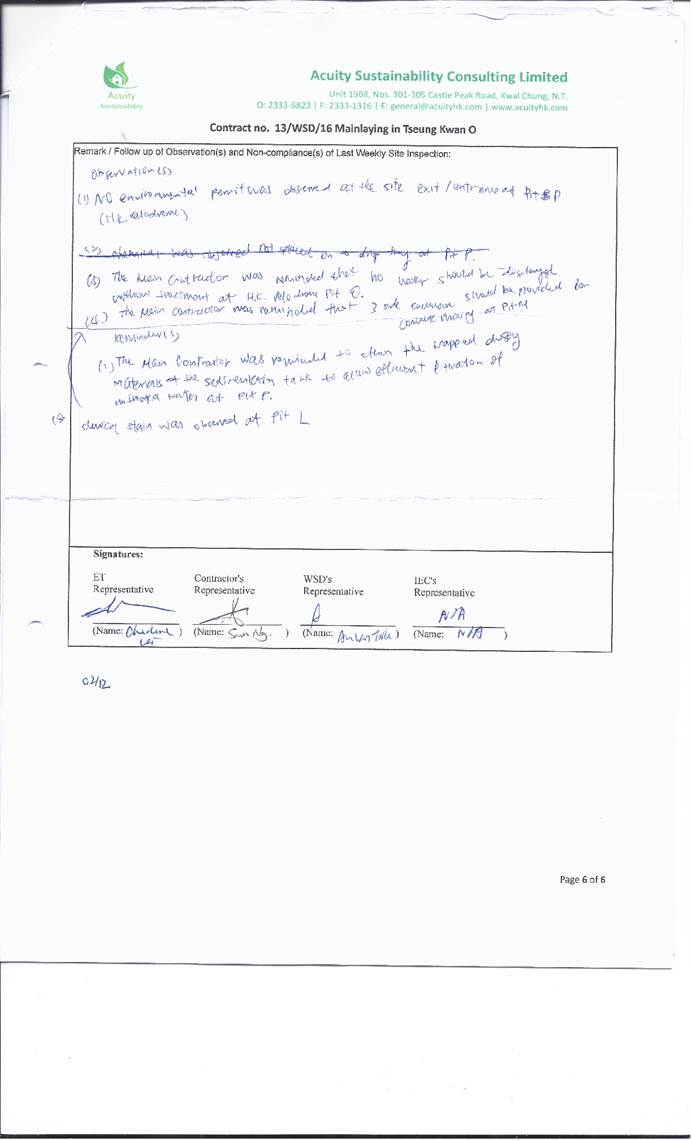 Acuity
Sustainability
Acuity Sustainability Consulting Limited
Unit 1908, Nos. 301-305 Castle Peak Road, Kwai Chung, N.T.
O: 2333-6823 | F: 2333-1316 | E: general@acuityhk.com | www.acuityhk.com
Contract no. 13/WSD/16 Mainlaying in Tseung Kwan O
Remark / Follow up of Observation(s) and Non-compliance(s) of Last Weekly Site Inspection:
Observation(s)
(1) NO environmental permit was observed at the site exit / entrance of Pit P
(H.K. Velodrome)
(2) chemical was observed not placed on a drip tray at Pit P.
(3) The Main Contractor was reminded that no water should be discharged
without treatment at H.K. Velodrome Pit O.
(4) The Main Contractor was reminded that 3 side enclosure should be provided for
concrete mixing at Pit M
Reminder(s)
(1) The Main Contractor was reminded to clean the trapped dusty
materials at the sedimentation tank to allow efficient filtration of
water at Pit P.
(5)
stain was observed at Pit L
Signatures:
ET
Representative
Contractor's
Representative
WSD's
Representative
IEC's
Representative
N/A
(Name: )
(Name: Sam Ng. )
(Name: )
(Name: N/A )
02/12
Page 6 of 6